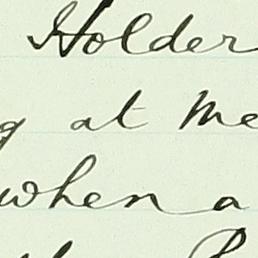 Holder
g at Me
when a